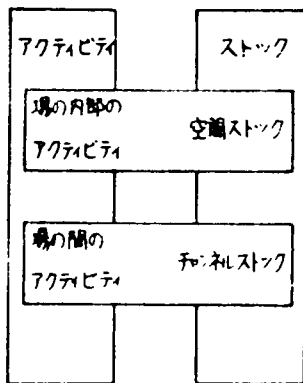 アクティビティ
ストック
場の内部の
アクティビティ
空間ストック
場の間の
アクティビティ
チャンネルストック